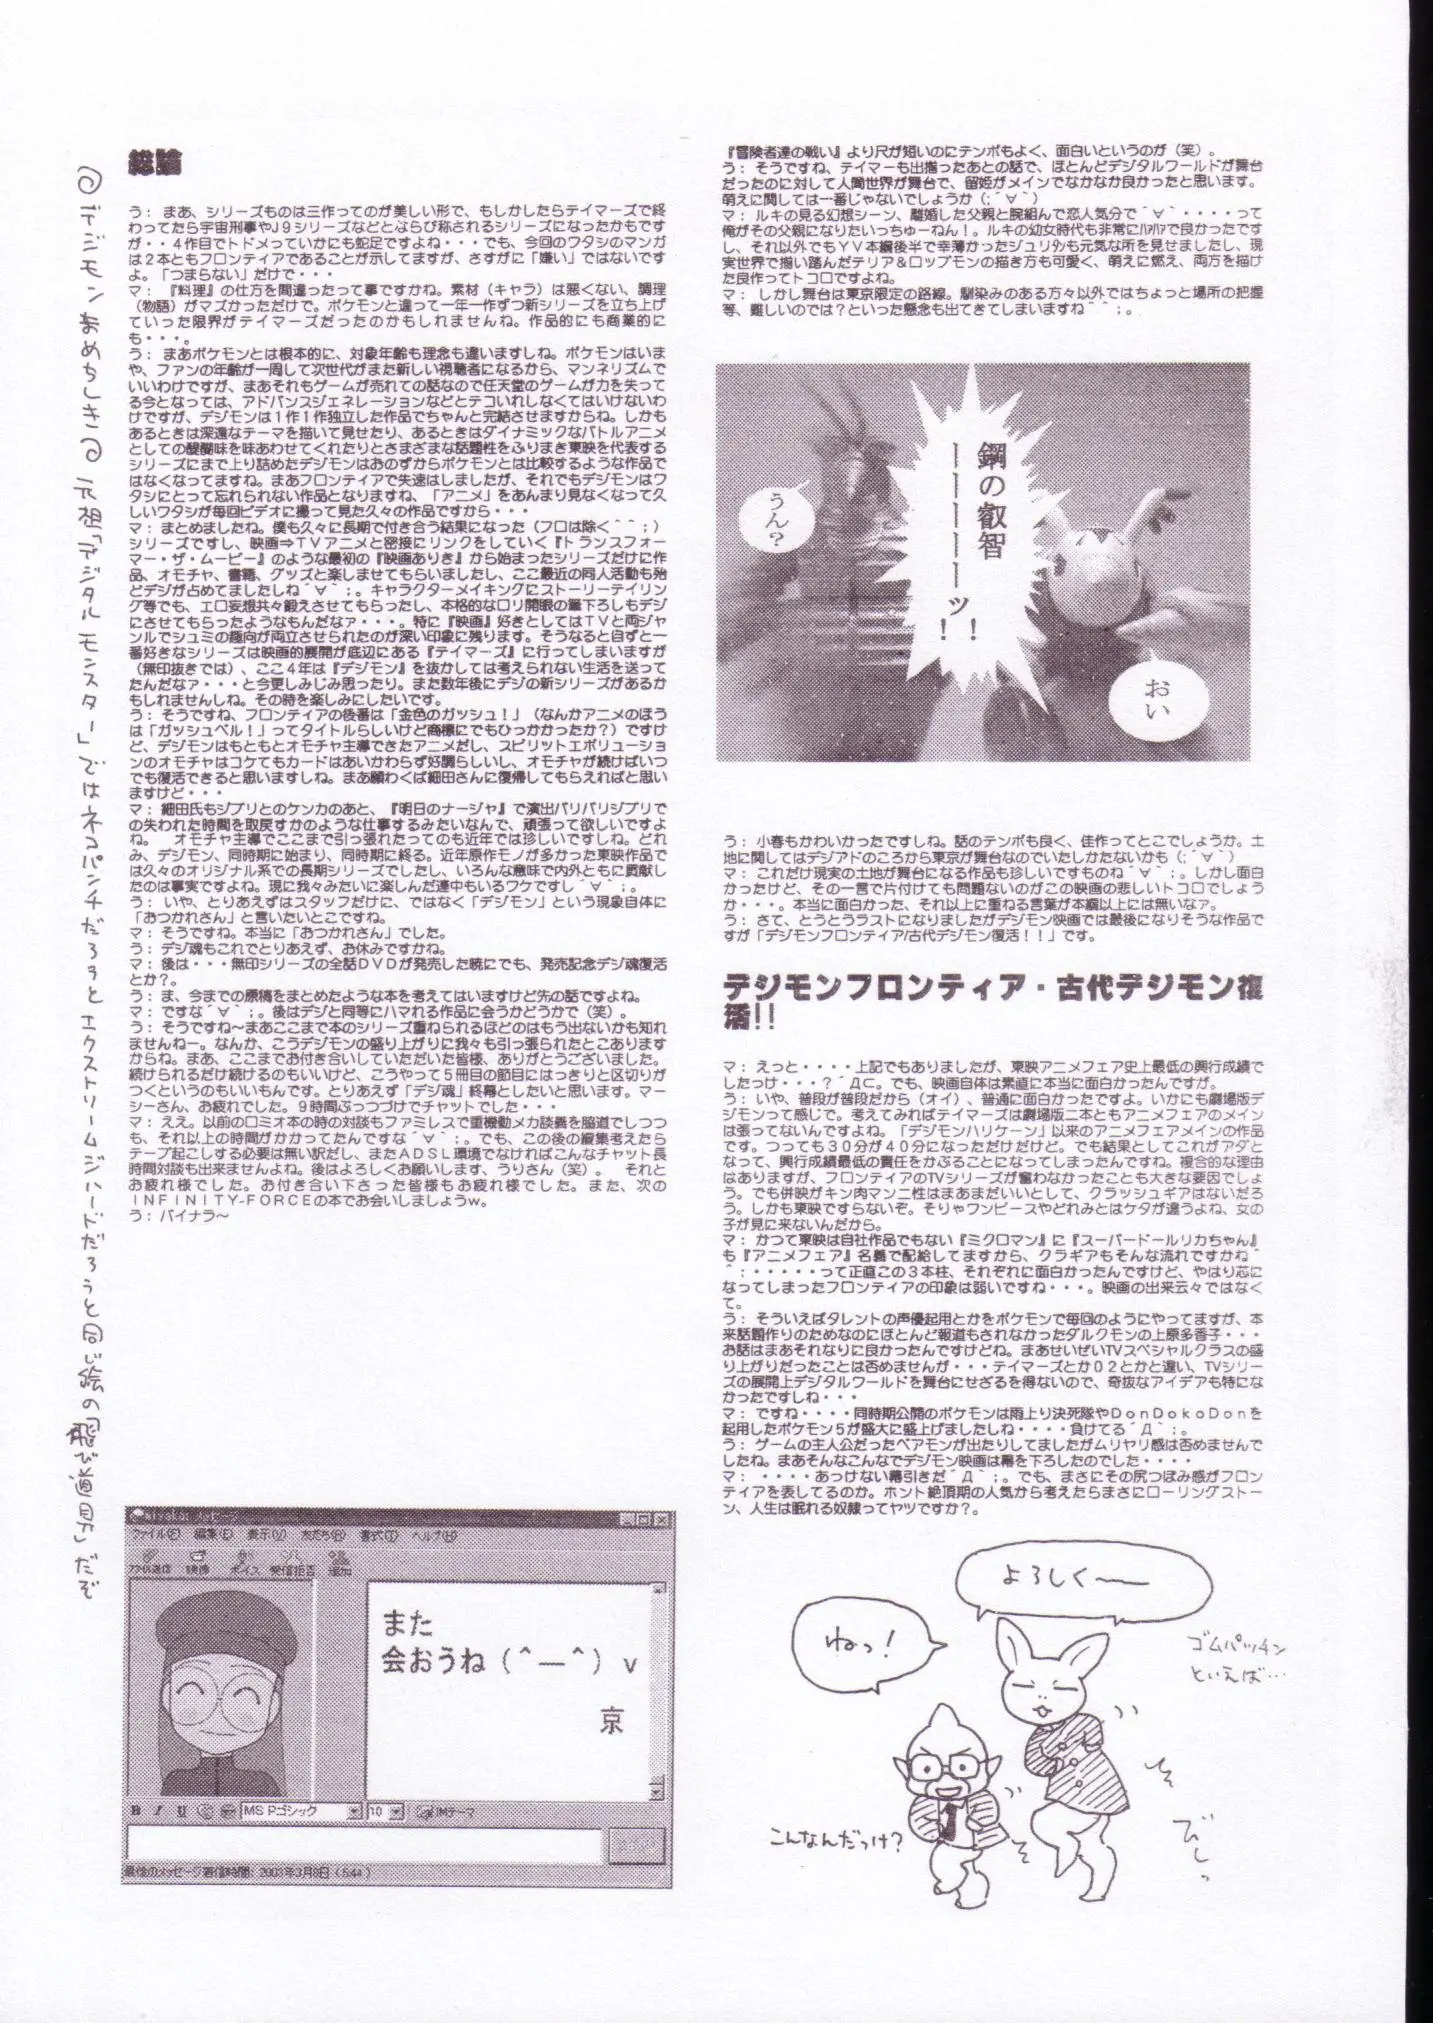 『冒険者達の戦い』より尺が短いのにテンポもよく、面白いというのが（笑）。
う：そうですね、テイマーも出揃ったあとの話で、ほとんどデジタルワールドが舞台
だったのに対して人間世界が舞台で、留姫がメインでなかなか良かったと思います。
萌えに関しては一番じゃないでしょうか（；´∀｀）
マ：ルキの見る幻想シーン、離婚した父親と腕組んで恋人気分で´∀｀・・・・って
俺がその父親になりたいっちゅーねん！。ルキの幼女時代も非常にﾊｧﾊｧで良かったです
し、それ以外でもＹＶ本編後半で幸薄かったジュリﾀﾝも元気な所を見せましたし、現
実世界で揃い踏んだテリア＆ロップモンの描き方も可愛く、萌えに燃え、両方を描け
た良作ってトコロですよね。
マ：しかし舞台は東京限定の路線。馴染みのある方々以外ではちょっと場所の把握
等、難しいのでは？といった懸念も出てきてしまいますね＾＾；。
うん？
鋼の叡智ーーーーーッ！！
おい
う：小春もかわいかったですしね。話のテンポも良く、佳作ってとこでしょうか。土
地に関してはデジアドのころから東京が舞台なのでいたしかたないかも（；´∀｀）
マ：これだけ現実の土地が舞台になる作品も珍しいですものね´∀｀；。しかし面白
かったけど、その一言で片付けても問題ないのがこの映画の悲しいトコロでしょう
か・・・。本当に面白かった、それ以上に重ねる言葉が本編以上には無いなァ。
う：さて、とうとうラストになりましたがデジモン映画では最後になりそうな作品で
すが「デジモンフロンティア/古代デジモン復活！！」です。
デジモンフロンティア・古代デジモン復
活！！
マ：えっと・・・・上記でもありましたが、東映アニメフェア史上最低の興行成績で
したっけ・・・？´Д⊂。でも、映画自体は素直に本当に面白かったんですが。
う：いや、普段が普段だから（オイ）、普通に面白かったですよ。いかにも劇場版デ
ジモンって感じで。考えてみればテイマーズは劇場版二本ともアニメフェアのメイン
は張ってないんですよね。「デジモンハリケーン」以来のアニメフェアメインの作品
です。つっても３０分が４０分になっただけだけど。でも結果としてこれがアダと
なって、興行成績最低の責任をかぶることになってしまったんですね。複合的な理由
はありますが、フロンティアのTVシリーズが奮わなかったことも大きな要因でしょ
う。でも併映がキン肉マン二性はまあまだいいとして、クラッシュギアはないだろ
う。しかも東映ですらないぞ。そりゃワンピースやどれみとはケタが違うよね、女の
子が見に来ないんだから。
マ：かつて東映は自社作品でもない『ミクロマン』に『スーパードールリカちゃん』
も『アニメフェア』名義で配給してますから、クラギアもそんな流れですかね＾
＾；・・・・・って正直この３本柱、それぞれに面白かったんですけど、やはり芯に
なってしまったフロンティアの印象は弱いですね・・・。映画の出来云々ではなく
て。
う：そういえばタレントの声優起用とかをポケモンで毎回のようにやってますが、本
来話題作りのためなのにほとんど報道もされなかったダルクモンの上原多香子・・・
お話はまあそれなりに良かったんですけどね。まあせいぜいTVスペシャルクラスの盛
り上がりだったことは否めませんが・・・テイマーズとか０２とかと違い、TVシリー
ズの展開上デジタルワールドを舞台にせざるを得ないので、奇抜なアイデアも特にな
かったですしね・・・
マ：ですね・・・・同時期公開のポケモンは雨上り決死隊やＤｏｎＤｏｋｏＤｏｎを
起用したポケモン５が盛大に盛上げましたしね・・・・負けてる´Д｀；。
う：ゲームの主人公だったベアモンが出たりしてましたがムリヤリ感は否めませんで
したね。まあそんなこんなでデジモン映画は幕を下ろしたのでした・・・・
マ：・・・・あっけない幕引きだ´Д｀；。でも、まさにその尻つぼみ感がフロン
ティアを表してるのか。ホント絶頂期の人気から考えたらまさにローリングストー
ン、人生は眠れる奴隷ってヤツですか？。
よろしく〜
ねっ！
ゴムパッチン
といえば…
こんなんだっけ？
びしっ
総論
う：まあ、シリーズものは三作ってのが美しい形で、もしかしたらテイマーズで終
わってたら宇宙刑事やJ９シリーズなどとならび称されるシリーズになったかもです
が・・４作目でトドメっていかにも蛇足ですよね・・・でも、今回のワタシのマンガ
は２本ともフロンティアであることが示してますが、さすがに「嫌い」ではないです
よ。「つまらない」だけで・・・
マ：『料理』の仕方を間違ったって事ですかね。素材（キャラ）は悪くない、調理
（物語）がマズかっただけで。ポケモンと違って一年一作ずつ新シリーズを立ち上げ
ていった限界がテイマーズだったのかもしれませんね。作品的にも商業的に
も・・・。
う：まあポケモンとは根本的に、対象年齢も理念も違いますしね。ポケモンはいま
や、ファンの年齢が一周して次世代がまた新しい視聴者になるから、マンネリズムで
いいわけですが、まあそれもゲームが売れての話なので任天堂のゲームが力を失って
る今となっては、アドバンスジェネレーションなどとテコいれしなくてはいけないわ
けですが、デジモンは１作１作独立した作品でちゃんと完結させますからね。しかも
あるときは深遠なテーマを描いて見せたり、あるときはダイナミックなバトルアニメ
としての醍醐味を味あわせてくれたりとさまざまな話題性をふりまき東映を代表する
シリーズにまで上り詰めたデジモンはおのずからポケモンとは比較するような作品で
はなくなってますね。まあフロンティアで失速はしましたが、それでもデジモンはワ
タシにとって忘れられない作品となりますね、「アニメ」をあんまり見なくなって久
しいワタシが毎回ビデオに撮って見た久々の作品ですから・・・
マ：まとめましたね。僕も久々に長期で付き合う結果になった（フロは除く＾＾；）
シリーズですし、映画⇒ＴＶアニメと密接にリンクをしていく『トランスフォー
マー・ザ・ムービー』のような最初の『映画ありき』から始まったシリーズだけに作
品、オモチャ、書籍、グッズと楽しませてもらいましたし、ここ最近の同人活動も殆
どデジが占めてましたしね´∀｀；。キャラクターメイキングにストーリーテイリン
グ等でも、エロ妄想共々鍛えさせてもらったし、本格的なロリ開眼の筆下ろしもデジ
にさせてもらったようなもんだなァ・・・。特に『映画』好きとしてはＴＶと両ジャ
ンルでシュミの趣向が両立させられたのが深い印象に残ります。そうなると自ずと一
番好きなシリーズは映画的展開が底辺にある『テイマーズ』に行ってしまいますが
（無印抜きでは）、ここ４年は『デジモン』を抜かしては考えられない生活を送って
たんだなァ・・・と今更しみじみ思ったり。また数年後にデジの新シリーズがあるか
もしれませんしね。その時を楽しみにしたいです。
う：そうですね、フロンティアの後番は「金色のガッシュ！」（なんかアニメのほう
は「ガッシュベル！」ってタイトルらしいけど商標にでもひっかかったか？）ですけ
ど、デジモンはもともとオモチャ主導できたアニメだし、スピリットエボリューショ
ンのオモチャはコケてもカードはあいかわらず好調らしいし、オモチャが続けばいつ
でも復活できると思いますしね。まあ願わくば細田さんに復帰してもらえればと思い
ますけど・・・
マ：細田氏もジブリとのケンカのあと、『明日のナージャ』で演出バリバリジブリで
の失われた時間を取戻すかのような仕事するみたいなんで、頑張って欲しいですよ
ね。　オモチャ主導でここまで引っ張れたってのも近年では珍しいですしね。どれ
み、デジモン、同時期に始まり、同時期に終る。近年原作モノが多かった東映作品で
は久々のオリジナル系での長期シリーズでしたし、いろんな意味で内外ともに貢献し
たのは事実ですよね。現に我々みたいに楽しんだ連中もいるワケですし´∀｀；。
う：いや、とりあえずはスタッフだけに、ではなく「デジモン」という現象自体に
「おつかれさん」と言いたいとこですね。
マ：そうですね。本当に「おつかれさん」でした。
う：デジ魂もこれでとりあえず、お休みですかね。
マ：後は・・・無印シリーズの全話ＤＶＤが発売した暁にでも、発売記念デジ魂復活
とか？。
う：ま、今までの原稿をまとめたような本を考えてはいますけど先の話ですよね。
マ：ですな´∀｀；。後はデジと同等にハマれる作品に会うかどうかで（笑）。
う：そうですね〜まあここまで本のシリーズ重ねられるほどのはもう出ないかも知れ
ませんねー。なんか、こうデジモンの盛り上がりに我々も引っ張られたとこあります
からね。まあ、ここまでお付き合いしていただいた皆様、ありがとうございました。
続けられるだけ続けるのもいいけど、こうやって５冊目の節目にはっきりと区切りが
つくというのもいいもんです。とりあえず「デジ魂」終幕としたいと思います。マー
シーさん、お疲れでした。９時間ぶっつづけでチャットでした・・・
マ：ええ。以前のロミオ本の時の対談もファミレスで重機動メカ談義を脇道でしつつ
も、それ以上の時間がかかってたんですな´∀｀；。でも、この後の編集考えたら
テープ起こしする必要は無い訳だし、またＡＤＳＬ環境でなければこんなチャット長
時間対談も出来ませんよね。後はよろしくお願いします、うりさん（笑）。　それと
お疲れ様でした。お付き合い下さった皆様もお疲れ様でした。また、次の
ＩＮＦＩＮＩＴＹ-ＦＯＲＣＥの本でお会いしましょうw。
う：バイナラ〜
ファイル(F) 編集(E) 表示(V) 友だち(R) 書式(T) ヘルプ(H)
ファイル送信 映像 ボイス 受信拒否 追加
また
会おうね（＾―＾）ｖ
京
B I U MS Pゴシック 10 IMテーマ
最後のメッセージ着信時間: 2003年3月8日 (5:44)
◎デジモンまめちしき◎ 元祖「デジタルモンスター」ではネコパンチだろうとエクストリームジハードだろうと同じ絵の「飛び道具」だぞ